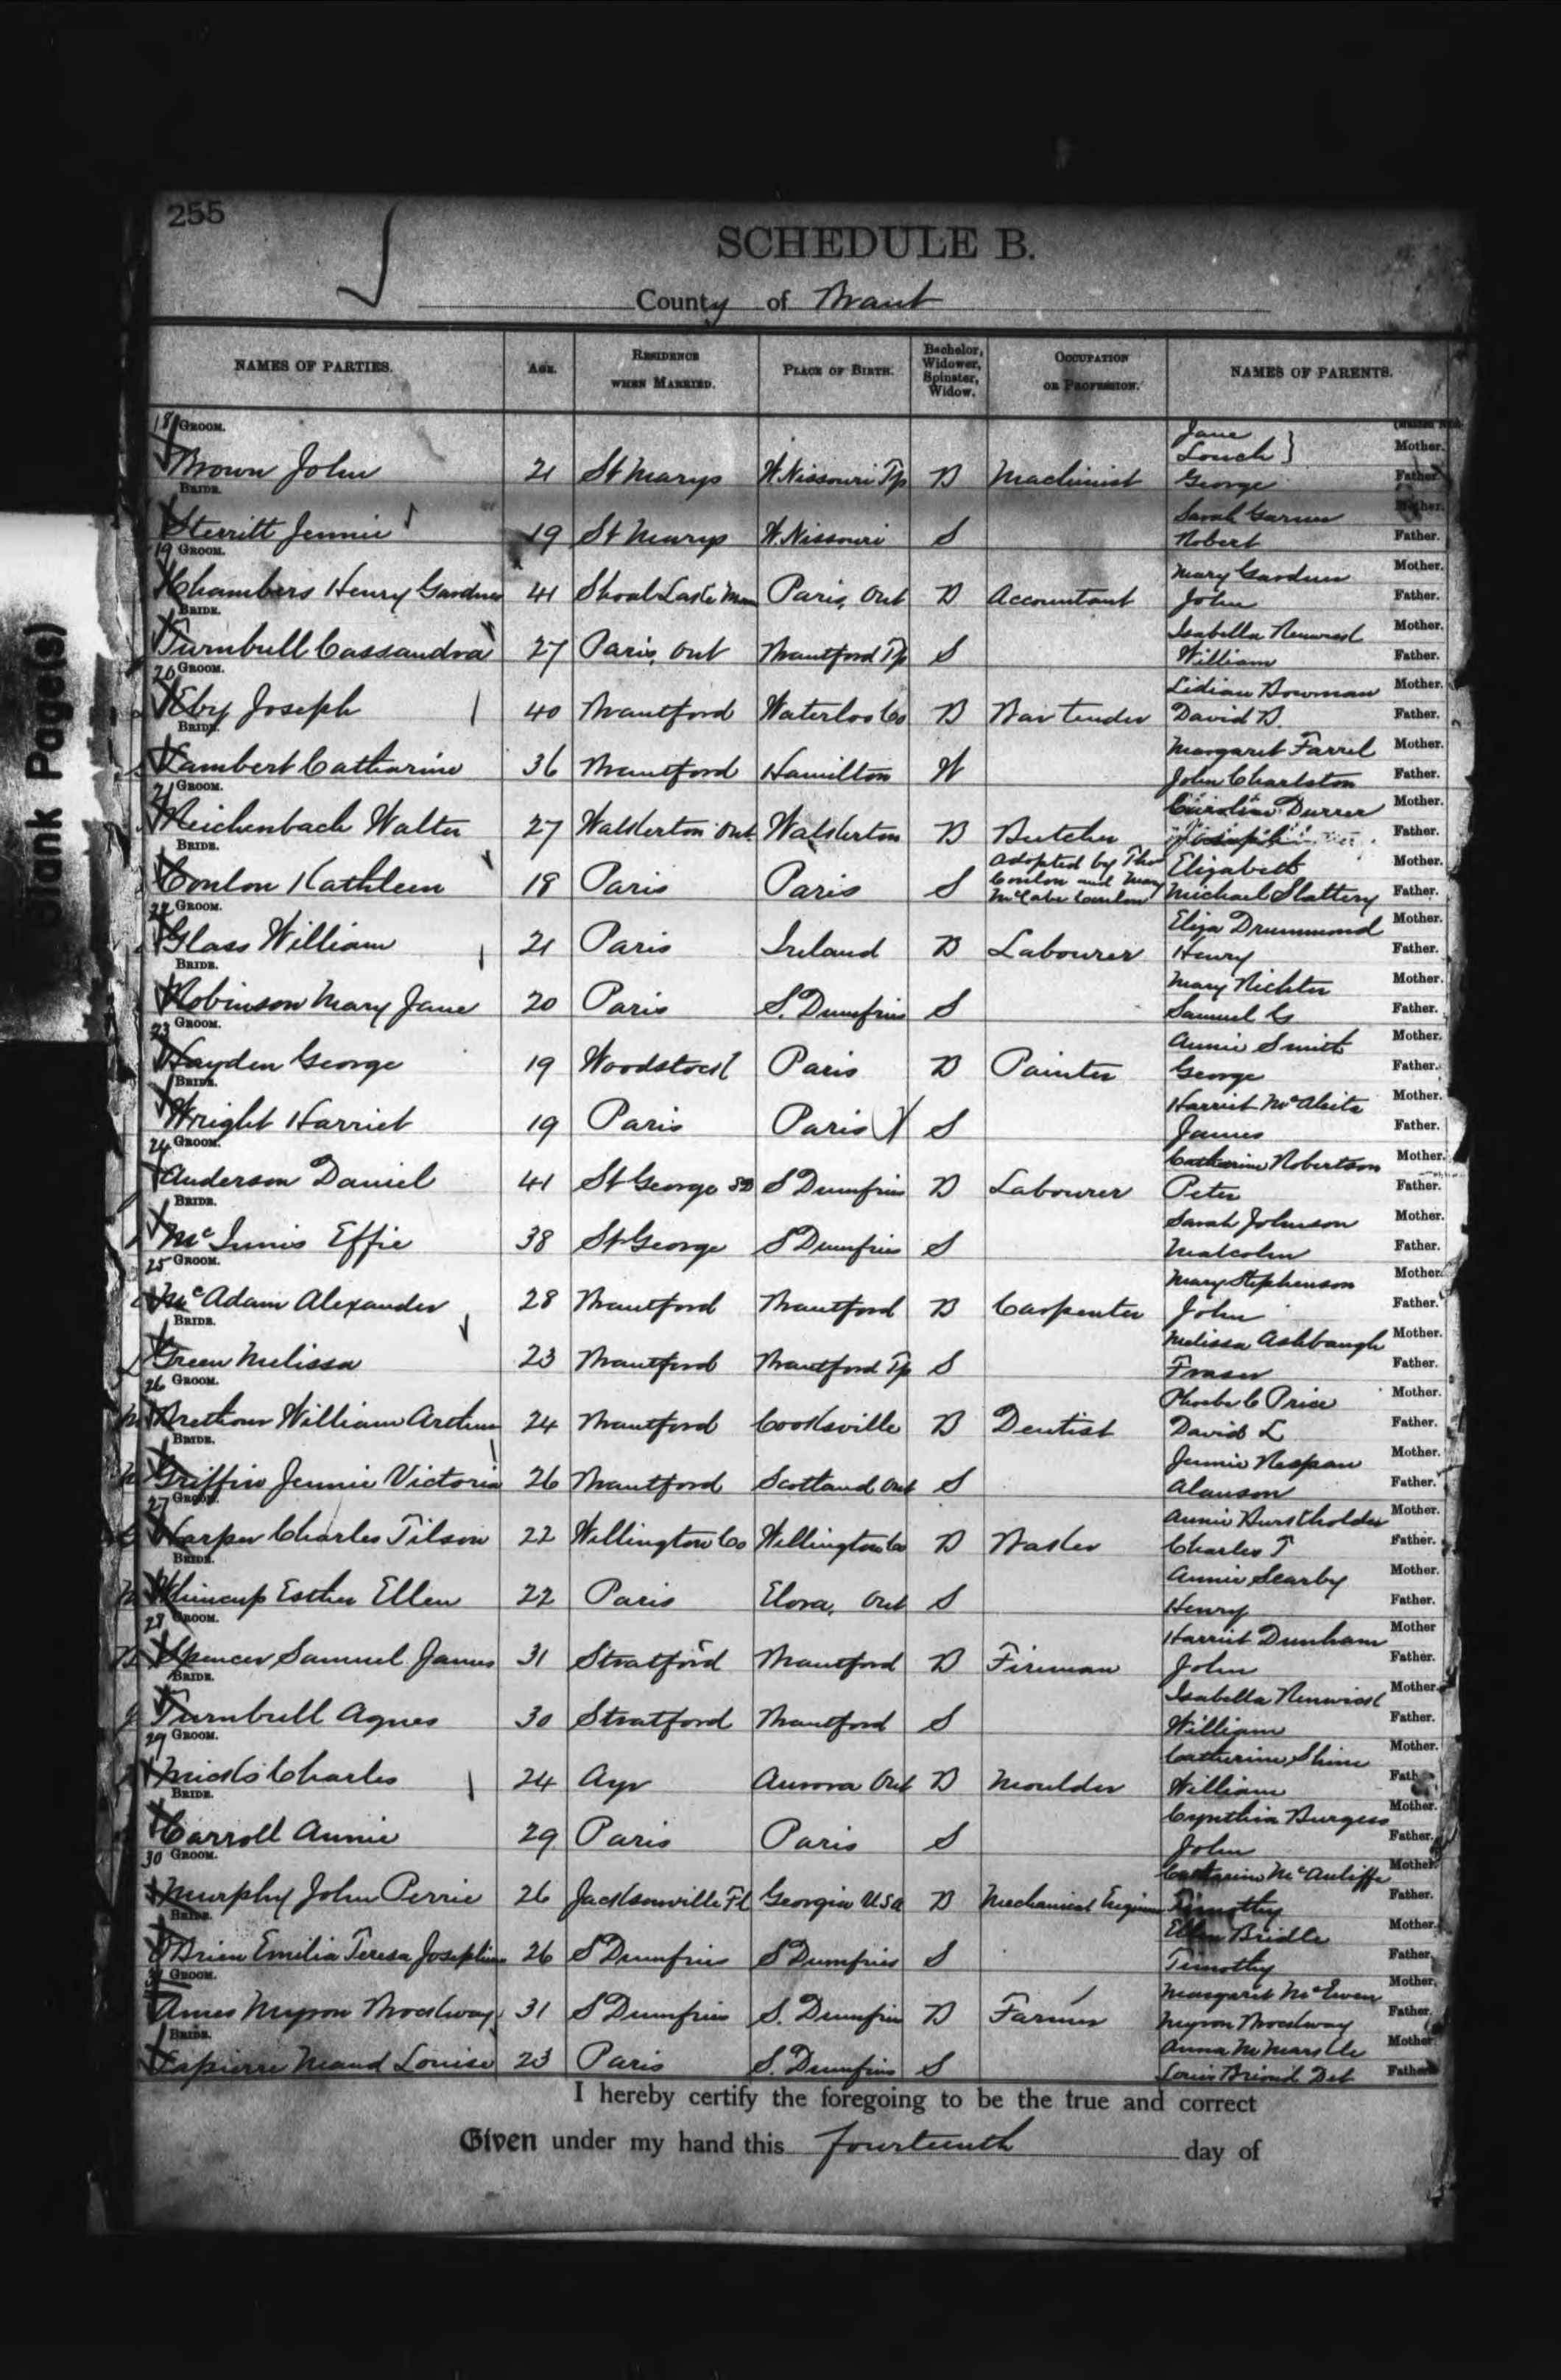 255
SCHEDULE B.
County of Brant
NAMES OF PARTIES. AGE. RESIDENCE WHEN MARRIED. PLACE OF BIRTH. Bachelor, Widower, Spinster, Widow. OCCUPATION OR PROFESSION. NAMES OF PARENTS.
18 GROOM. Jane Mother.
Brown John 21 St Marys W. Nissouri Tp B Machinist George Father.
BRIDE. Sarah Mother.
Sterritt Jennie 19 St Marys W. Nissouri S Robert Father.
19 GROOM. Mary Gardner Mother.
Chambers Henry Gardner 41 Shoal Lake Man Paris, Ont B Accountant John Father.
BRIDE. Isabella Renwick Mother.
Turnbull Cassandra 27 Paris, Ont Brantford Tp S William Father.
20 GROOM. Lidian Bowman Mother.
Eby Joseph 40 Brantford Waterloo Co B Bar tender David B. Father.
BRIDE. Margaret Farrel Mother.
Lambert Catharine 36 Brantford Hamilton W John Charlston Father.
21 GROOM. Caroline Durrer Mother.
Reichenbach Walter 27 Walkerton Ont Walkerton B Butcher Joseph Father.
BRIDE. Adopted by Thos Elizabeth Mother.
Conlon Kathleen 18 Paris Paris S Conlon and Mary McCabe Conlon Michael Slattery Father.
22 GROOM. Eliza Drummond Mother.
Glass William 21 Paris Ireland B Labourer Henry Father.
BRIDE. Mary Richter Mother.
Robinson Mary Jane 20 Paris S. Dumfries S Samuel G Father.
23 GROOM. Annie Smith Mother.
Hayden George 19 Woodstock Paris B Painter George Father.
BRIDE. Harriet Mother.
Wright Harriet 19 Paris Paris S James Father.
24 GROOM. Catharine Robertson Mother.
Anderson Daniel 41 St George SD S Dumfries B Labourer Peter Father.
BRIDE. Sarah Johnson Mother.
McInnis Effie 38 St George S Dumfries S Malcolm Father.
25 GROOM. Mary Stephenson Mother.
McAdam Alexander 28 Brantford Brantford B Carpenter John Father.
BRIDE. Melissa Ashbaugh Mother.
Green Melissa 23 Brantford Brantford Tp S Fraser Father.
26 GROOM. Phoebe C Price Mother.
Brethour William Arthur 24 Brantford Cooksville B Dentist David L Father.
BRIDE. Jennie Mother.
Griffin Jennie Victoria 26 Brantford Scotland Ont S Alanson Father.
27 GROOM. Annie Burkholder Mother.
Harper Charles Tilson 22 Wellington Co Wellington Co B Baker Charles T Father.
BRIDE. Annie Searby Mother.
Whincup Esther Ellen 22 Paris Elora, Ont S Henry Father.
28 GROOM. Harriet Dunham Mother
Spencer Samuel James 31 Stratford Brantford B Fireman John Father.
BRIDE. Isabella Renwick Mother.
Turnbull Agnes 30 Stratford Brantford S William Father.
29 GROOM. Catherine Shine Mother.
Micks Charles 24 Ayr Aurora Ont B Moulder William Father.
BRIDE. Cynthia Burgess Mother.
Carroll Annie 29 Paris Paris S John Father.
30 GROOM. Catharine McAuliffe Mother.
Murphy John Perrie 26 Jacksonville Fl Georgia USA B Mechanical Engineer Timothy Father.
BRIDE. Ellen Bridle Mother.
OBrien Emilia Teresa Josephine 26 S Dumfries S Dumfries S Timothy Father.
31 GROOM. Margaret McEwen Mother.
Ames Myron Brockway 31 S Dumfries S. Dumfries B Farmer Myron Brockway Father.
BRIDE. Anna M Mother.
Lapierre Maud Louise 23 Paris S. Dumfries S Father.
I hereby certify the foregoing to be the true and correct
Given under my hand this fourteenth day of
Blank Page(s)